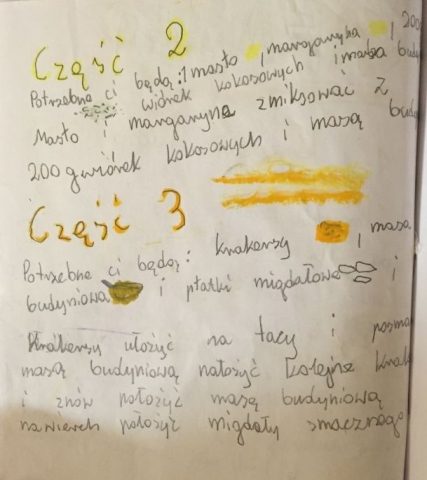 Część 2
Potrzebne ci będą: 1 masło , 1 margaryna , 200
wiórek kokosowych i masa budy
Masło i margarynę zmiksować z
200 g wiórek kokosowych i masą budy
Część 3
Potrzebne ci będą: krakersy , masa
budyniowa i płatki migdałowe i
Krakersy ułożyć na tacy i posma
masą budyniową nałożyć kolejne krak
i znów położyć masę budyniową
na wierch położyć migdały smacznego